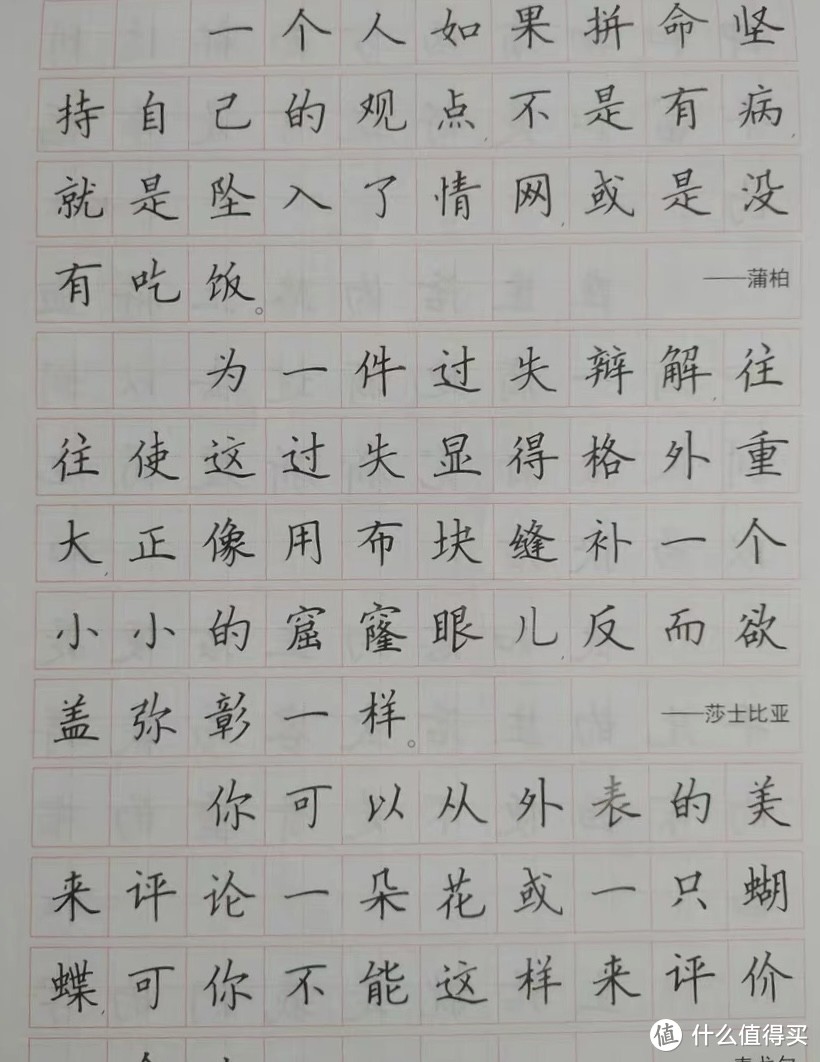 一个人如果拼命坚
持自己的观点,不是有病,
就是坠入了情网,或是没
有吃饭。 ——蒲柏
为一件过失辩解,往
往使这过失显得格外重
大,正像用布块缝补一个
小小的窟窿眼儿,反而欲
盖弥彰一样。 ——莎士比亚
你可以从外表的美
来评论一朵花或一只蝴
蝶,可你不能这样来评价
值 什么值得买